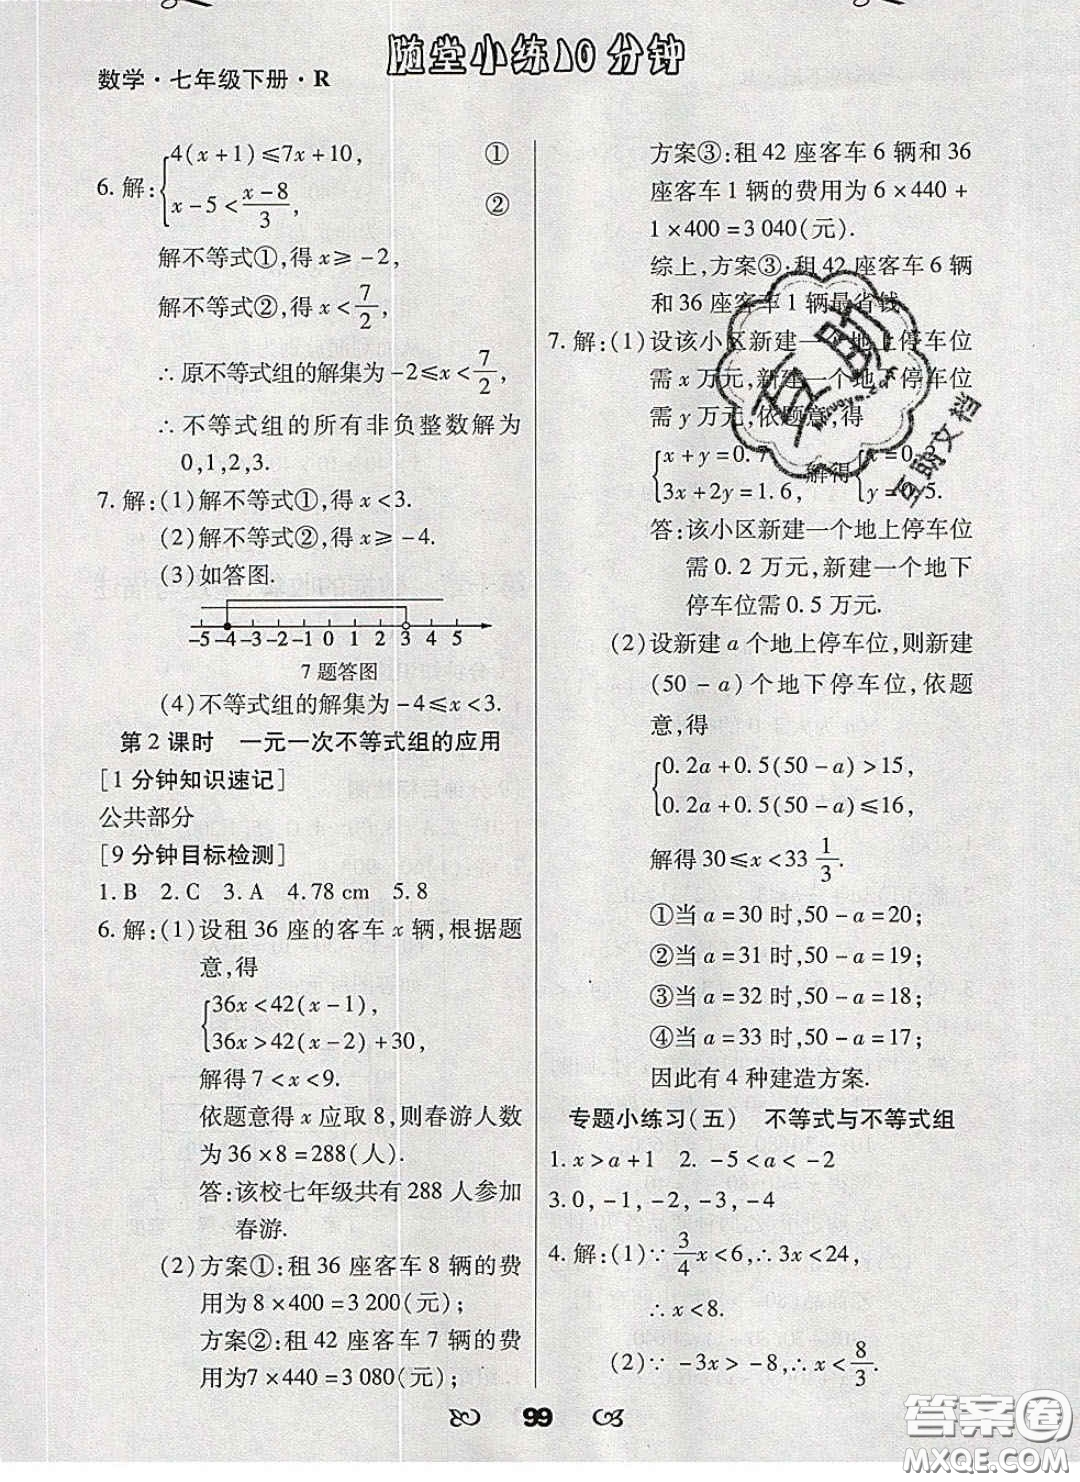 随堂小练10分钟
数学·七年级下册·R
6.解:{4(x+1)≤7x+10, ①
x-5<(x-8)/3, ②
解不等式①,得x≥-2,
解不等式②,得x<7/2,
∴原不等式组的解集为-2≤x<7/2,
∴不等式组的所有非负整数解为
0,1,2,3.
7.解:(1)解不等式①,得x<3.
(2)解不等式②,得x≥-4.
(3)如答图.
-5 -4 -3 -2 -1 0 1 2 3 4 5
7题答图
(4)不等式组的解集为-4≤x<3.
第2课时 一元一次不等式组的应用
[1分钟知识速记]
公共部分
[9分钟目标检测]
1.B 2.C 3.A 4.78 cm 5.8
6.解:(1)设租36座的客车x辆,根据题
意,得
{36x<42(x-1),
36x>42(x-2)+30,
解得7<x<9.
依题意得x应取8,则春游人数
为36×8=288(人).
答:该校七年级共有288人参加
春游.
(2)方案①:租36座客车8辆的费
用为8×400=3 200(元);
方案②:租42座客车7辆的费
用为7×440=3 080(元);
方案③:租42座客车6辆和36
座客车1辆的费用为6×440+
1×400=3 040(元).
综上,方案③:租42座客车6辆
和36座客车1辆最省钱
7.解:(1)设该小区新建一个地上停车位
需x万元,新建一个地下停车位
需y万元,依题意,得
{x+y=0.7
3x+2y=1.6, 解得{x=0.
y=0.5.
答:该小区新建一个地上停车位
需0.2万元,新建一个地下
停车位需0.5万元.
(2)设新建a个地上停车位,则新建
(50-a)个地下停车位,依题
意,得
{0.2a+0.5(50-a)>15,
0.2a+0.5(50-a)≤16,
解得30≤x<33 1/3.
①当a=30时,50-a=20;
②当a=31时,50-a=19;
③当a=32时,50-a=18;
④当a=33时,50-a=17;
因此有4种建造方案.
专题小练习(五) 不等式与不等式组
1.x>a+1 2.-5<a<-2
3.0,-1,-2,-3,-4
4.解:(1)∵3/4x<6,∴3x<24,
∴x<8.
(2)∵-3x>-8,∴x<8/3.
99
互助
互助文档
答案圈
MXQE.COM